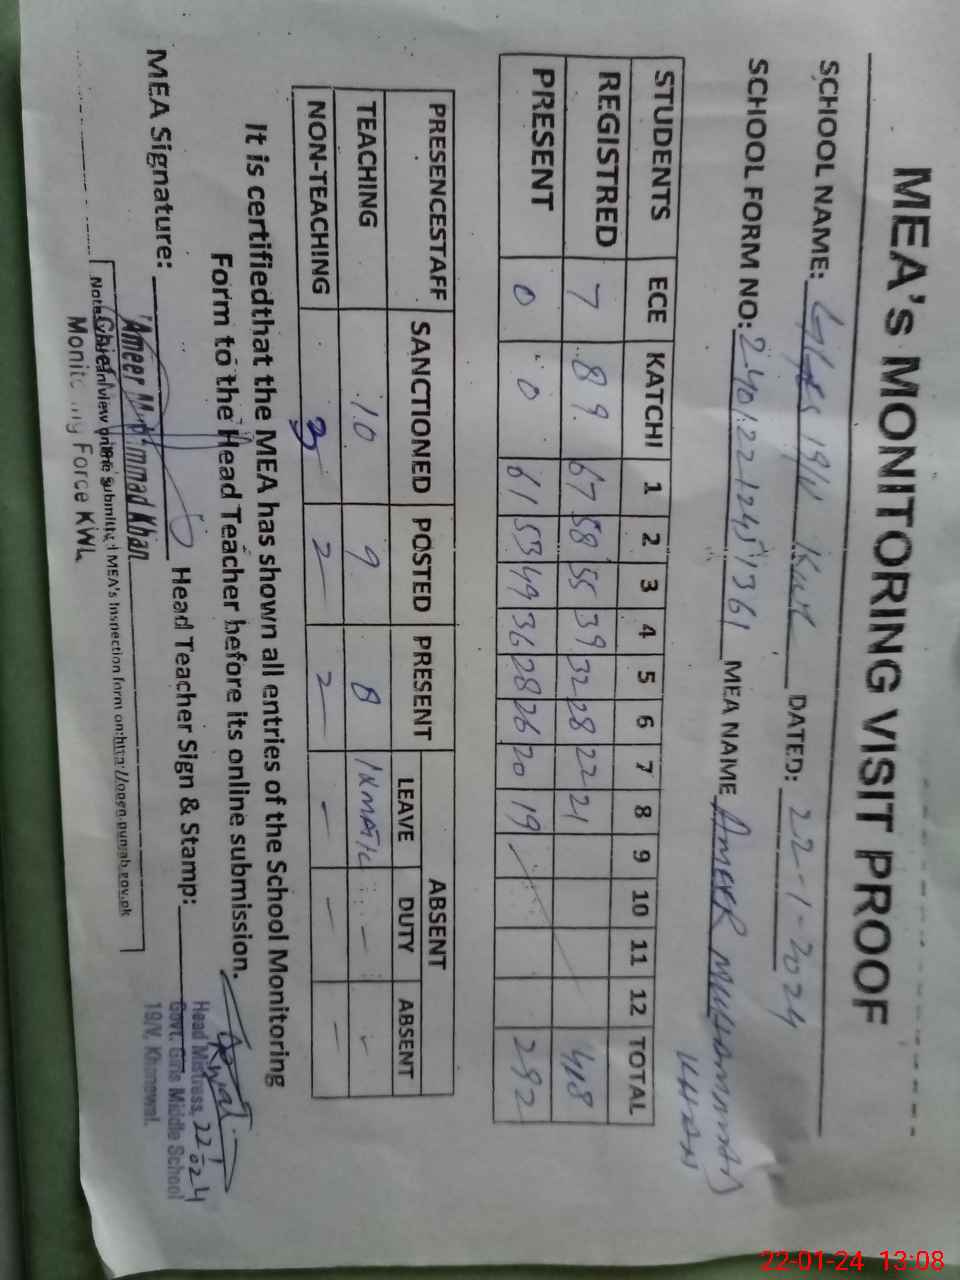 MEA's MONITORING VISIT PROOF
SCHOOL NAME: 19/V KWL DATED: 22-1-2024
SCHOOL FORM NO: MEA NAME AMEER MUHAMMAD
KHAN
STUDENTS ECE KATCHI 1 2 3 4 5 6 7 8 9 10 11 12 TOTAL
REGISTRED 7 89 67 58 55 39 32 28 22 21 418
PRESENT 0 0 61 53 49 36 28 26 20 19 292
PRESENCESTAFF SANCTIONED POSTED PRESENT ABSENT
LEAVE DUTY ABSENT
TEACHING 10 9 8 1 - -
NON-TEACHING 3 2 2 - - -
It is certifiedthat the MEA has shown all entries of the School Monitoring
Form to the Head Teacher before its online submission.
MEA Signature: Head Teacher Sign & Stamp:
Head Mistress, 22 1 024
Govt. Girls Middle School
19/V, Khanewal.
Ameer Muhammad Khan
Note: view online submitted MEA's Inspection form on:http://open.punjab.gov.pk
Monitoring Force KWL
22-01-24 13:08